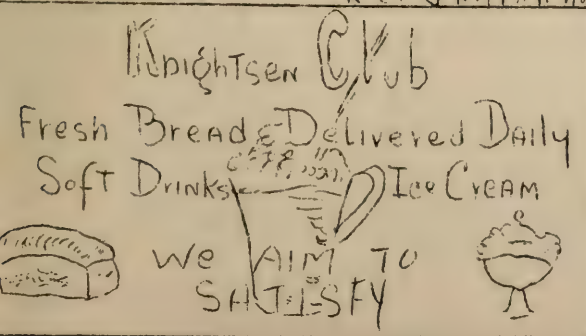 Knightsen Club
Fresh Bread Delivered Daily
Soft Drinks Ice Cream
We AIM TO
SATISFY